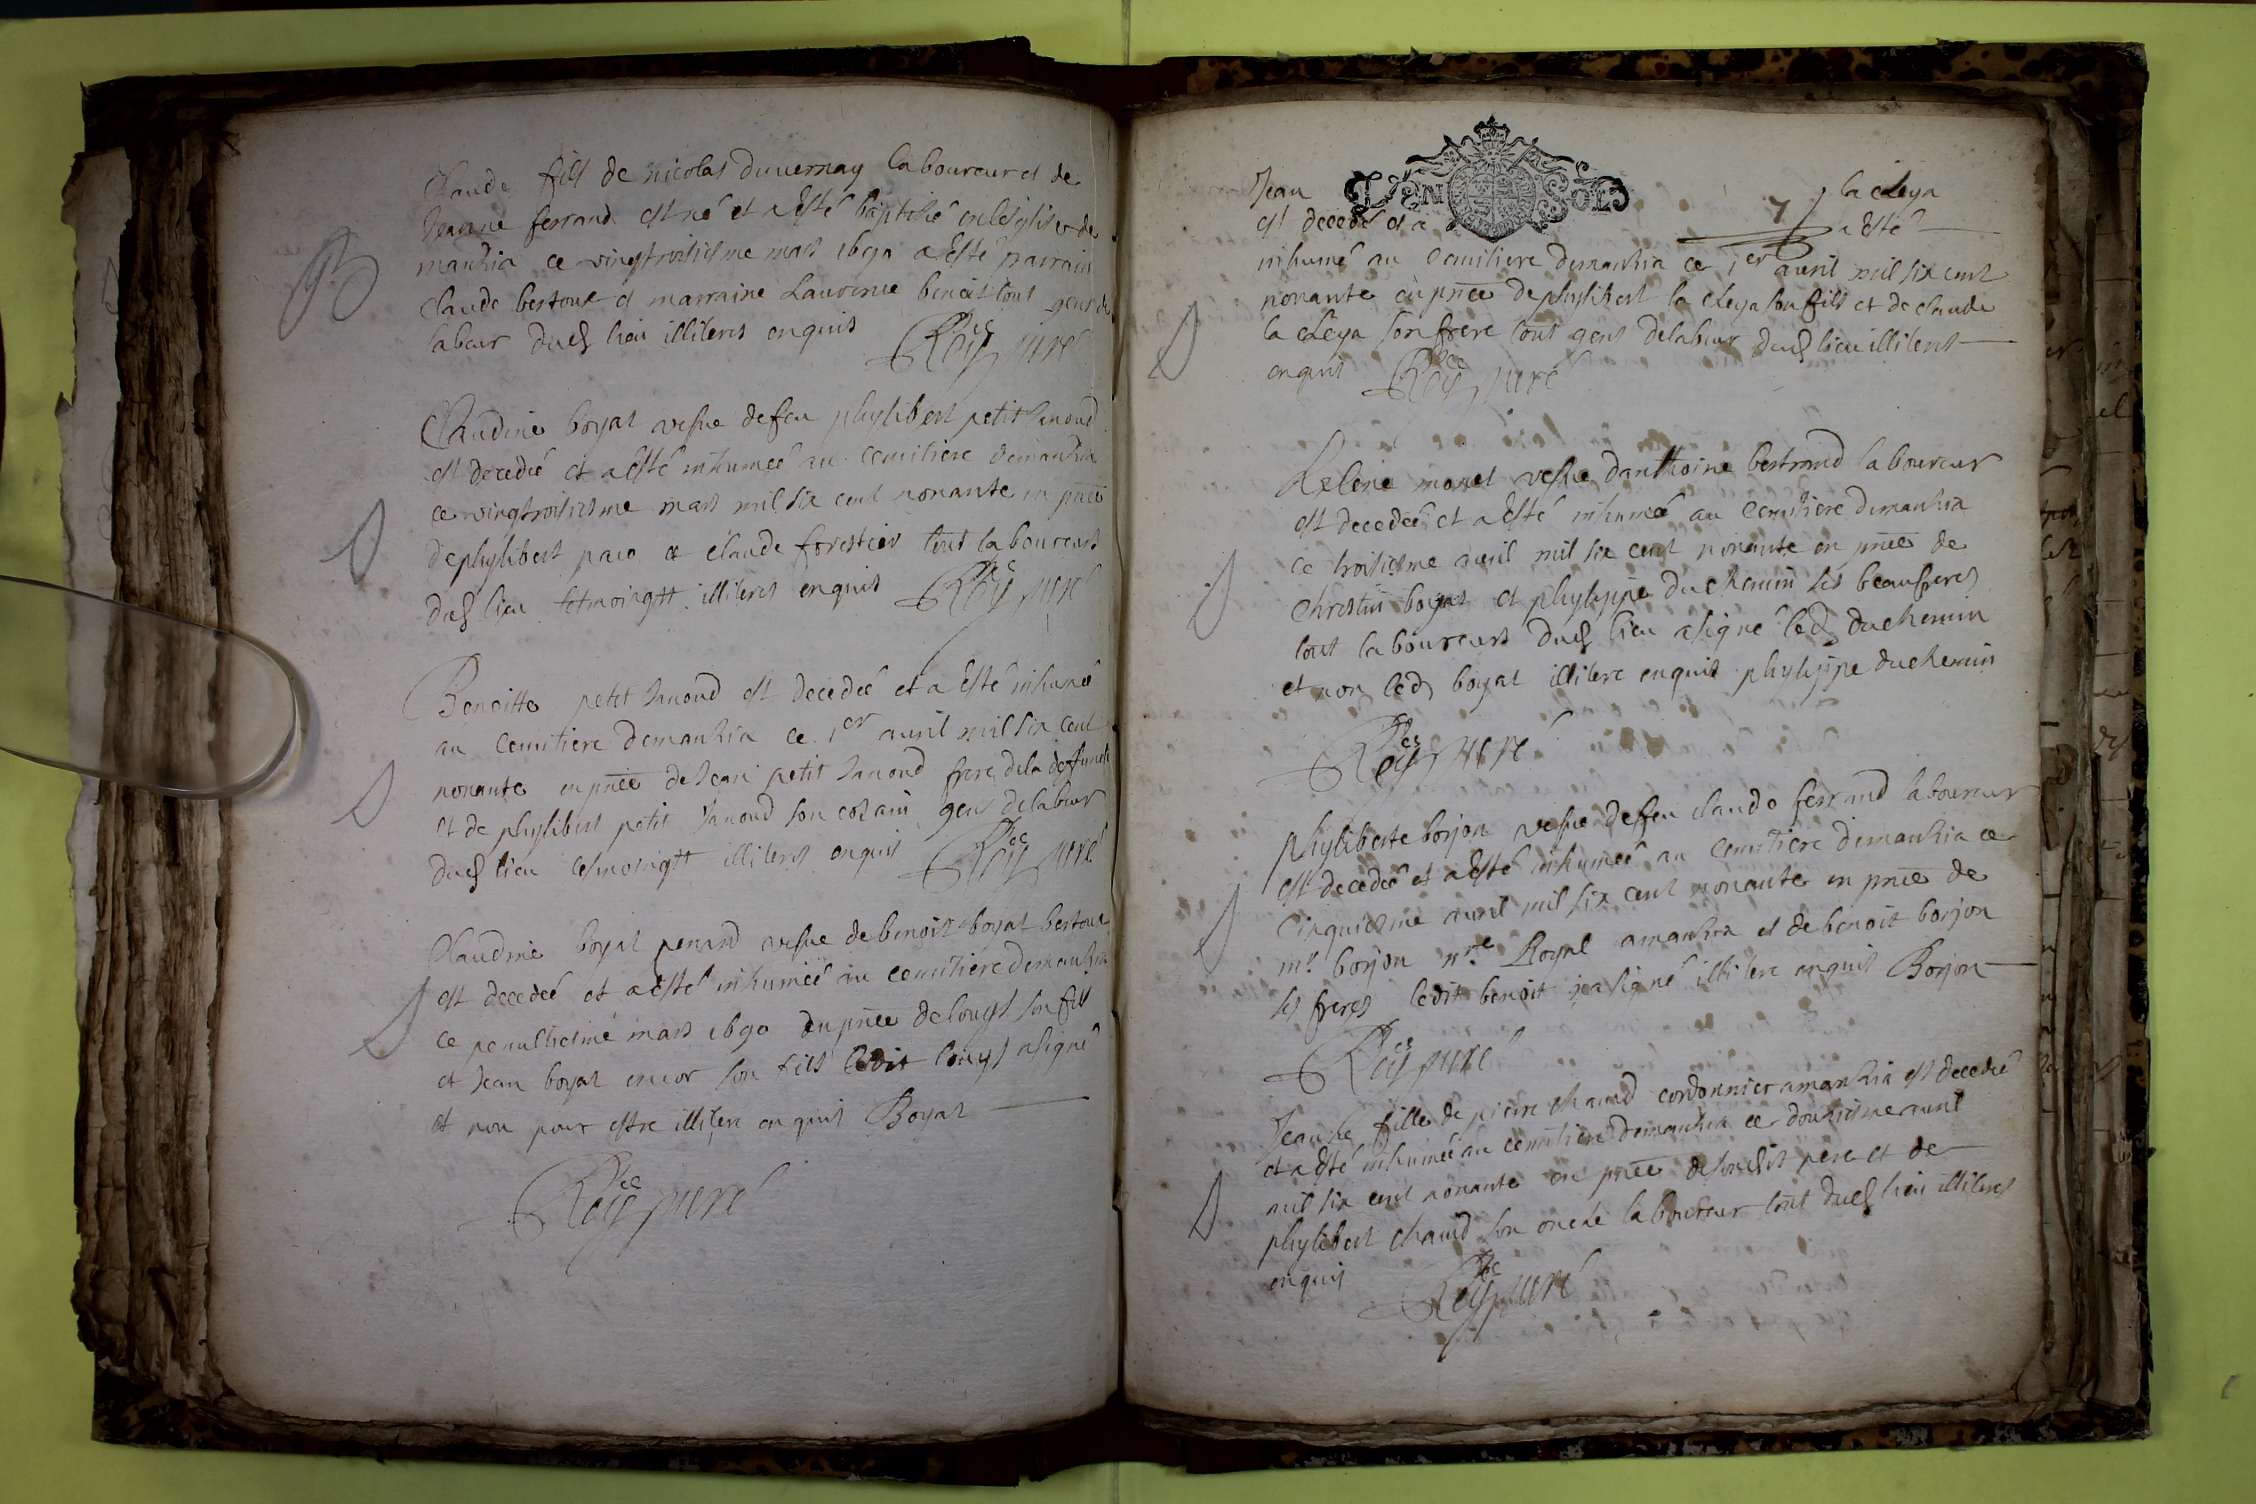 Claude fils de nicolas duuernay laboureur et de
Jeanne ferrand est né et a Esté baptisé en lesglise de
manhia ce vingtroisiesme mars 1690 a Esté parrain
Claude bertoux et marraine Laurence benoit tout gens de
labeur dud lieu illiteres enquis
Roy ptre curé
B
Claudine boyat vefue de feu phylibert petit Janoud
est decedeé et a Esté inhumeé au cemitiere demanhia
ce vingtroisiesme mars mil six cent nonante en pñce
de phylibert et claude forestier tout laboureurs
dud lieu tesmoingtt illiteres enquis
Roy ptre curé
S
Benoitte petit Janoud est decedeé et a esté inhumeé
au cemitiere demanhia ce 1er auril mil six cent
nonante en pñce de Jean petit Janoud frere de la deffuncte
et de phylibert petit Janoud son cozain gens de labeur
dud lieu tesmoingtt illiteres enquis
Roy ptre curé
S
Claudine boyat penard vefue de benoist boyat bertoux
est decedeé et a esté inhumeé au cemitiere demanhia
ce penultiesme mars 1690 en pñce de louys son fils
et Jean boyat encor son fils ledit louys a signé
et non pour estre illitere enquis Boyat
Roy ptre curé
S
Jean la cleya
7
est decedé et a a Esté
inhumé au cemitiere demanhia ce 1er auril mil six cent
nonante en pñce de phylibert la cleya son fils et de claude
la cleya son frere tout gens delabeur dud lieu illiteres
enquis
Roy ptre curé
S
helene monet vefue danthoine bertrand laboureur
est decedeé et a Esté inhumeé au cemitiere demanhia
ce troisiesme auril mil six cent nonante en pñce de
christin boyat et phylippe duchemin ses beaufreres
tout laboureurs dud lieu a signé led duchemin
et non led boyat illitere enquis phylippe duchemin
Roy ptre curé
S
phyliberte borjon vefue de feu claude ferrand laboureur
est decedeé et a Esté inhumeé au cemitiere demanhia ce
cinquiesme auril mil six cent nonante en pñce de
mr borjon nre Royal a manhia et de benoit borjon
ses freres ledit benoit a signé illitere enquis Borjon
Roy ptre curé
S
Jeanne fille de pierre chanud cordonnier a manhia est decedeé
et a esté inhumeé au cemitiere demanhia ce douziesme auril
mil six cent nonante en pñce de sondit pere et de
phylibert chanud son oncle laboureur tout dud lieu illiteres
enquis
Roy ptre curé
S